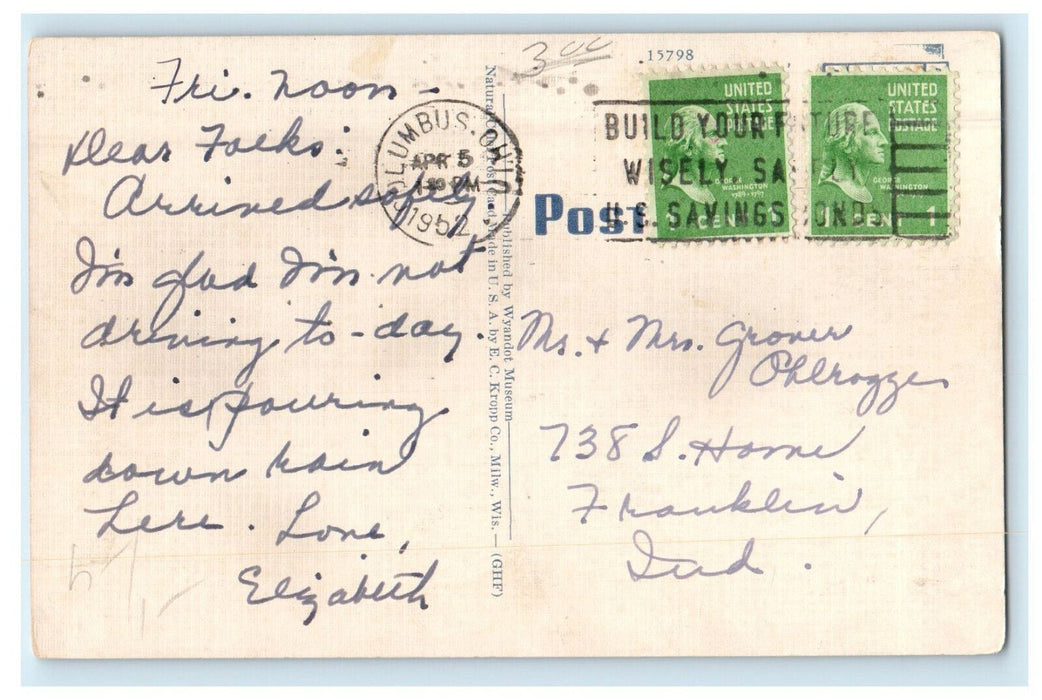 Fri. Noon -
Dear Folks:
Arrived safely
I'm glad I'm not
driving to-day.
It is pouring
down rain
here. Love,
Elizabeth
5
3 00
15798
COLUMBUS, OHIO
APR 5
PM
1952
BUILD YOUR FUTURE
WISELY, SAFELY
U.S. SAVINGS BONDS
UNITED
STATES
POSTAGE
GEORGE
WASHINGTON
1789-1797
1 CENT 1
UNITED
STATES
POSTAGE
GEORGE
WASHINGTON
1 CENT 1
Post
Published by Wyandot Museum
Natural Post Card Made in U. S. A. by E. C. Kropp Co., Milw., Wis. — (GHF)
Mr. + Mrs. Grover
Ohlrogge
738 S. Home
Franklin,
Ind.